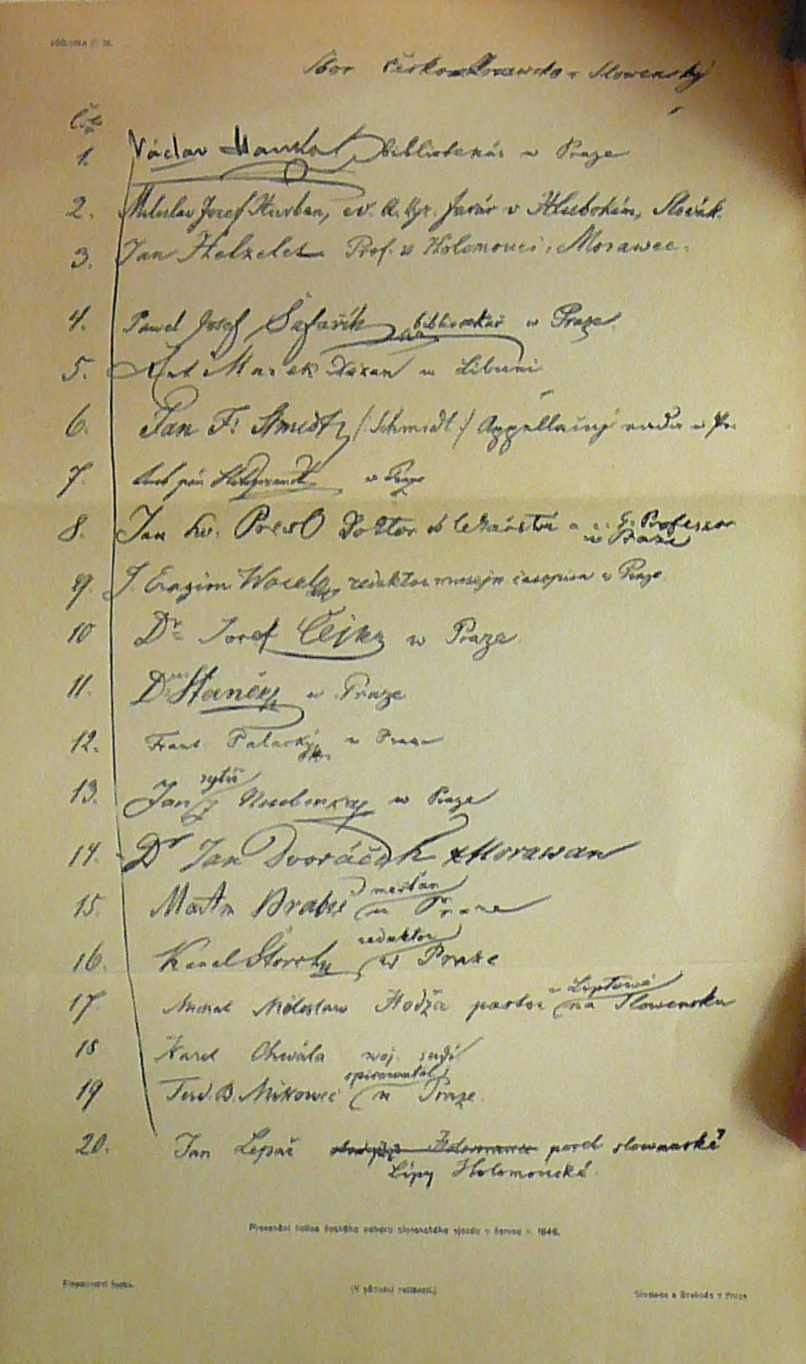 Sbor Česko-Morawsko-Slowenský
Čís.
1. Václav Hanka bibliotekář w Praze
2. Miloslav Josef Hurban, ev. A. V. farár v Hlubokém, Slovák.
3. Jan Helzelet Prof. w Holomouci, Morawec.
4. Pawel Josef Šafařík bibliotekář w Praze
5. Ant Marek Děkan w Libuni
6. Jan F. Šmidt /Schmidt/ Appellačný rada w Pr.
7. w Praze
8. Jan Sw. Presl Doktor lékařství a Professor
w Praze
9. J. Erazim Wocel, redaktor musejn. časopisu w Praze
10 Dr Josef Čejka w Praze
11. Dr Staněk w Praze
12. Frant Palacký w Praze
13. Jan rytíř Neuberský w Praze
14. Dr Jan Dvořáček z Moravan
15. Martin měšťan w Praze
16. Karel Štorch redaktor w Praze
17. Michal Miloslaw Hodža pastor w Liptowě na Slowensku
18 Karel Chwála woj. sudí
19 Ferd. B. Mikowec spisowatel w Praze
20. Jan Lepař pood slowanské
Lípy Holomoucké.
Presenční listina českého odboru slovanského sjezdu v červnu r. 1848.
(V původní velikosti.)